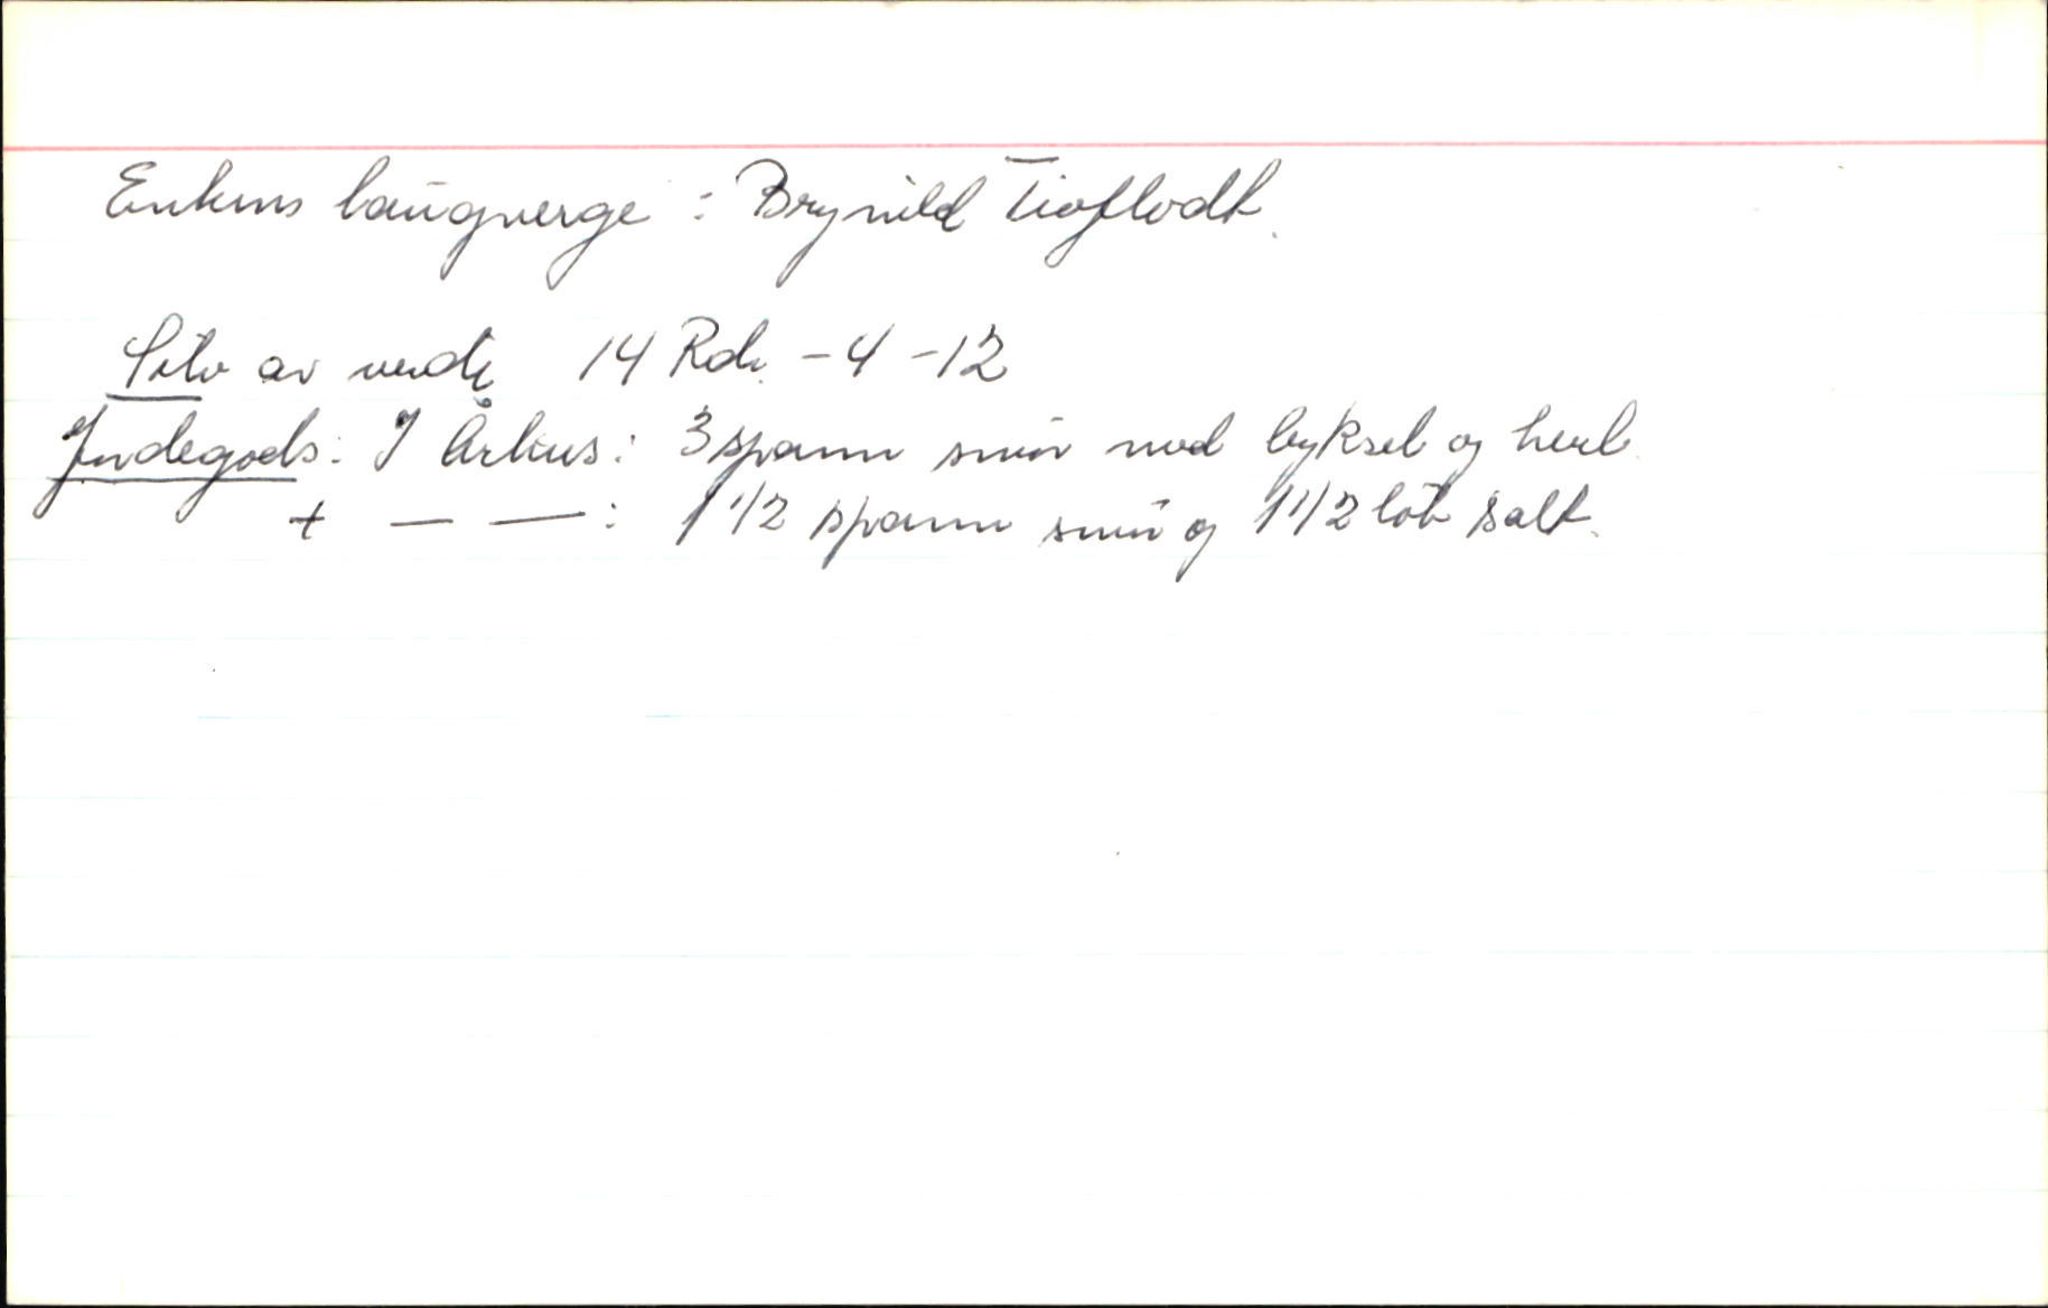 Enkens laugverge : Brynild Tioflodt.
Sølv av verdi 14 Rdr. - 4 - 12
Jordegods : I Århus : 3 spann smør med byksel og herl.
+ — — : 1 1/2 spann smør og 1 1/2 løb salt.